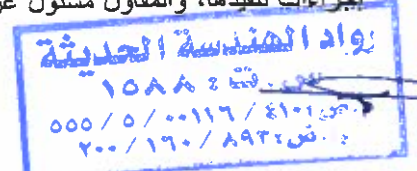 إجراءات تنفيذها، والمقاول مسئول عن
رواد الهندسة الحديثة
ت : ١٥٨٨
٥٥٥ / ٥ / ٠٠١١٦ / ٤١٠١
ش : ٨٩٢ / ١٦٠ / ٢٠٠